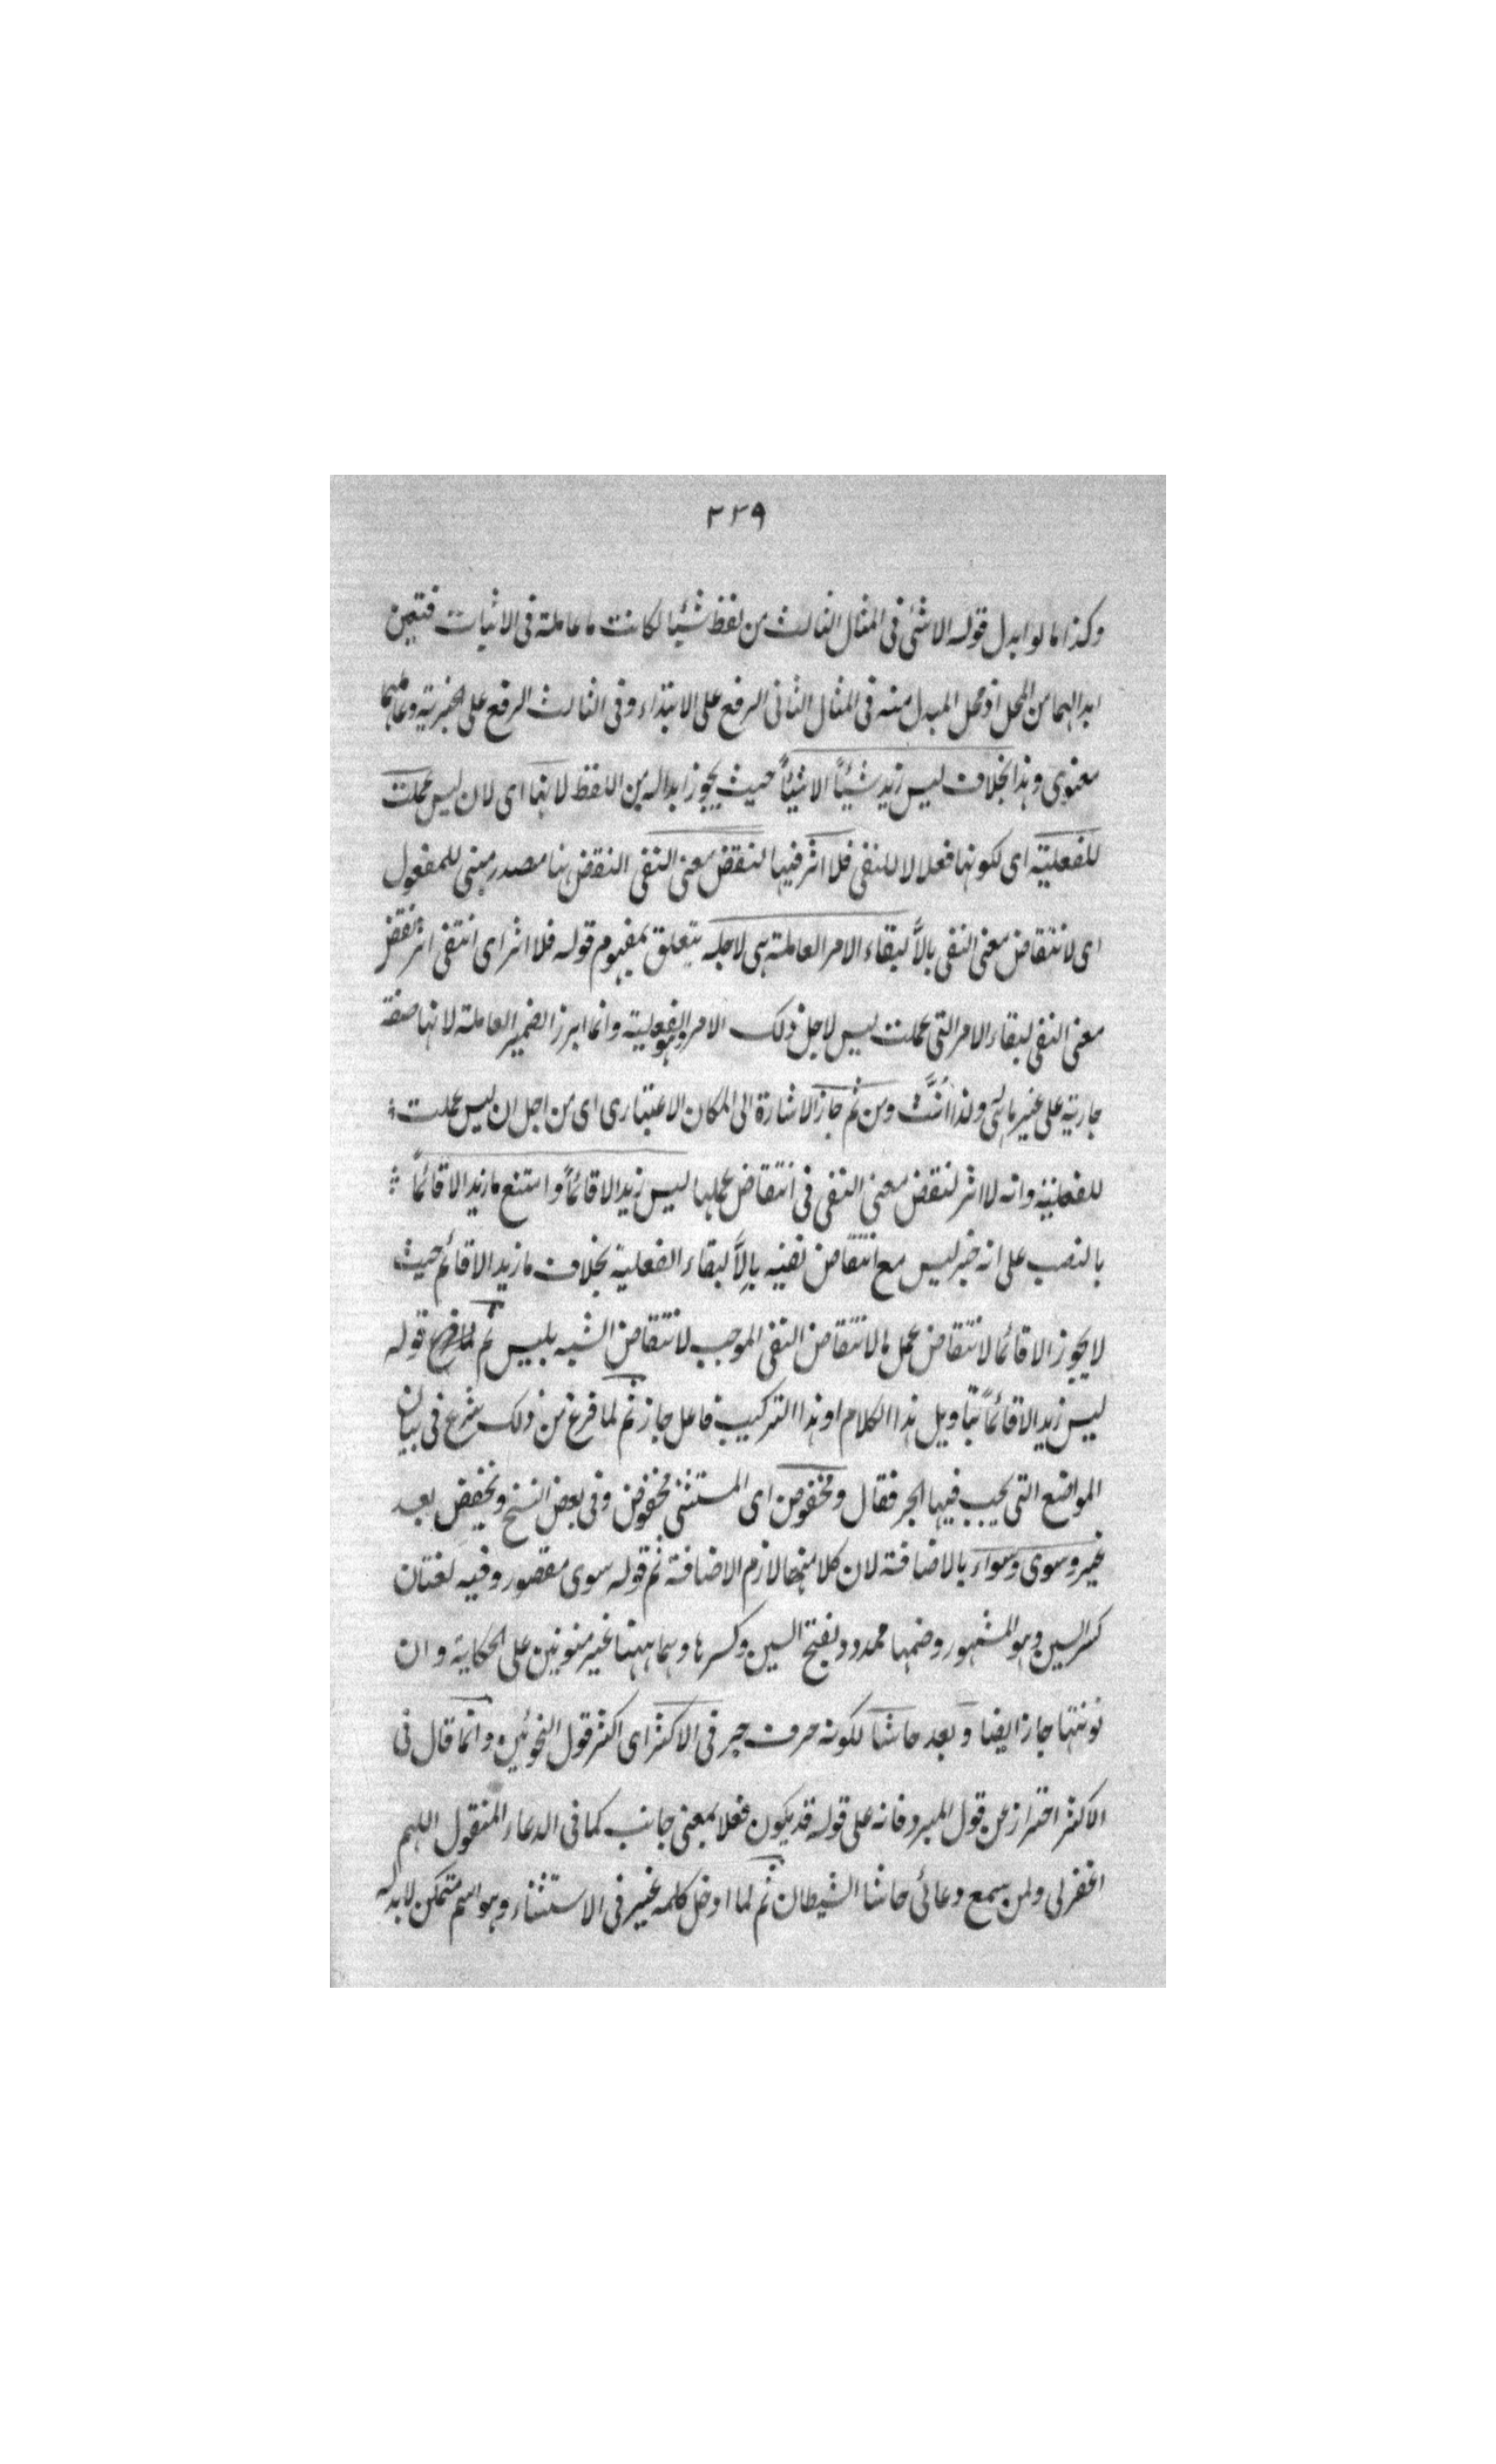 ٢٣٩
وكذا ما لو ابدل قوله الا شئ فى المثال الثالث من لفظ شيئا لكانت ما عاملة فى الاثبات فتعين
ابدالهما من المحل اذ محل المبدل منه فى المثال الثانى الرفع على الابتداء وفى الثالث الرفع على الخبرية وعاملهما
معنوى وهذا بخلاف ليس زيد شيئاً الا شيئاً حيث يجوز ابداله من اللفظ لانها اى لان ليس عملت
للفعلية اى لكونها فعلا لا للنفى فلا اثر فيها لنقض معنى النفى النقض هنا مصدر مبنى للمفعول
اى لانتقاض معنى النفى بالاَّ لبقاء الامر العاملة هى لاجله يتعلق بمفهوم قوله فلا اثر اى انتفى اثر نقض
معنى النفى لبقاء الامر التى عملت ليس لاجل ذلك الامر وهو الفعلية وانما ابرز الضمير العاملة لانها صفة
جارية على غير ما هى ولذا اُنّثَ ومن ثم جاز الاشارة الى المكان الاعتبارى اى من اجل ان ليس عملت
للفعلية وانه لا اثر لنقض معنى النفى فى انتقاض عملها ليس زيد الا قائماً وامتنع ما زيد الا قائماً
بالنصب على انه خبر ليس مع انتقاض نفيه بالاَّ لبقاء الفعلية بخلاف ما زيد الا قائم حيث
لا يجوز الا قائما لانتقاض عمل ما لانتقاض النفى الموجب لانتقاض الشبه بليس ثم قوله
ليس زيد الا قائماً بتاويل هذا الكلام او هذا التركيب فاعل جاز ثم لما فرغ من ذلك شرع فى بيان
المواضع التى يجب فيها الجر فقال ومخفوض اى المستثنى مخفوض وفى بعض النسخ ويخفض بعد
غير وسوى وسواء بالاضافة لان كلا منها لازم الاضافة ثم قوله سوى مقصور وفيه لغتان
كسر السين وهو المشهور وضمها ممدود بفتح السين وكسرها وهما ههنا غير منونين على الحكاية وان
نونتها جاز ايضا وبعد حاشا لكونه حرف جر فى الاكثر اى اكثر قول النحوئين وانما قال فى
الاكثر احترازعن قول المبرد فانه على قوله قد يكون فعلا بمعنى جانب كما فى الدعاء المنقول اللهم
اغفر لى ولمن يسمع دعائى حاشا الشيطان ثم لما ادخل كلمه غير فى الاستثناء وهو اسم متمكن لا بد له